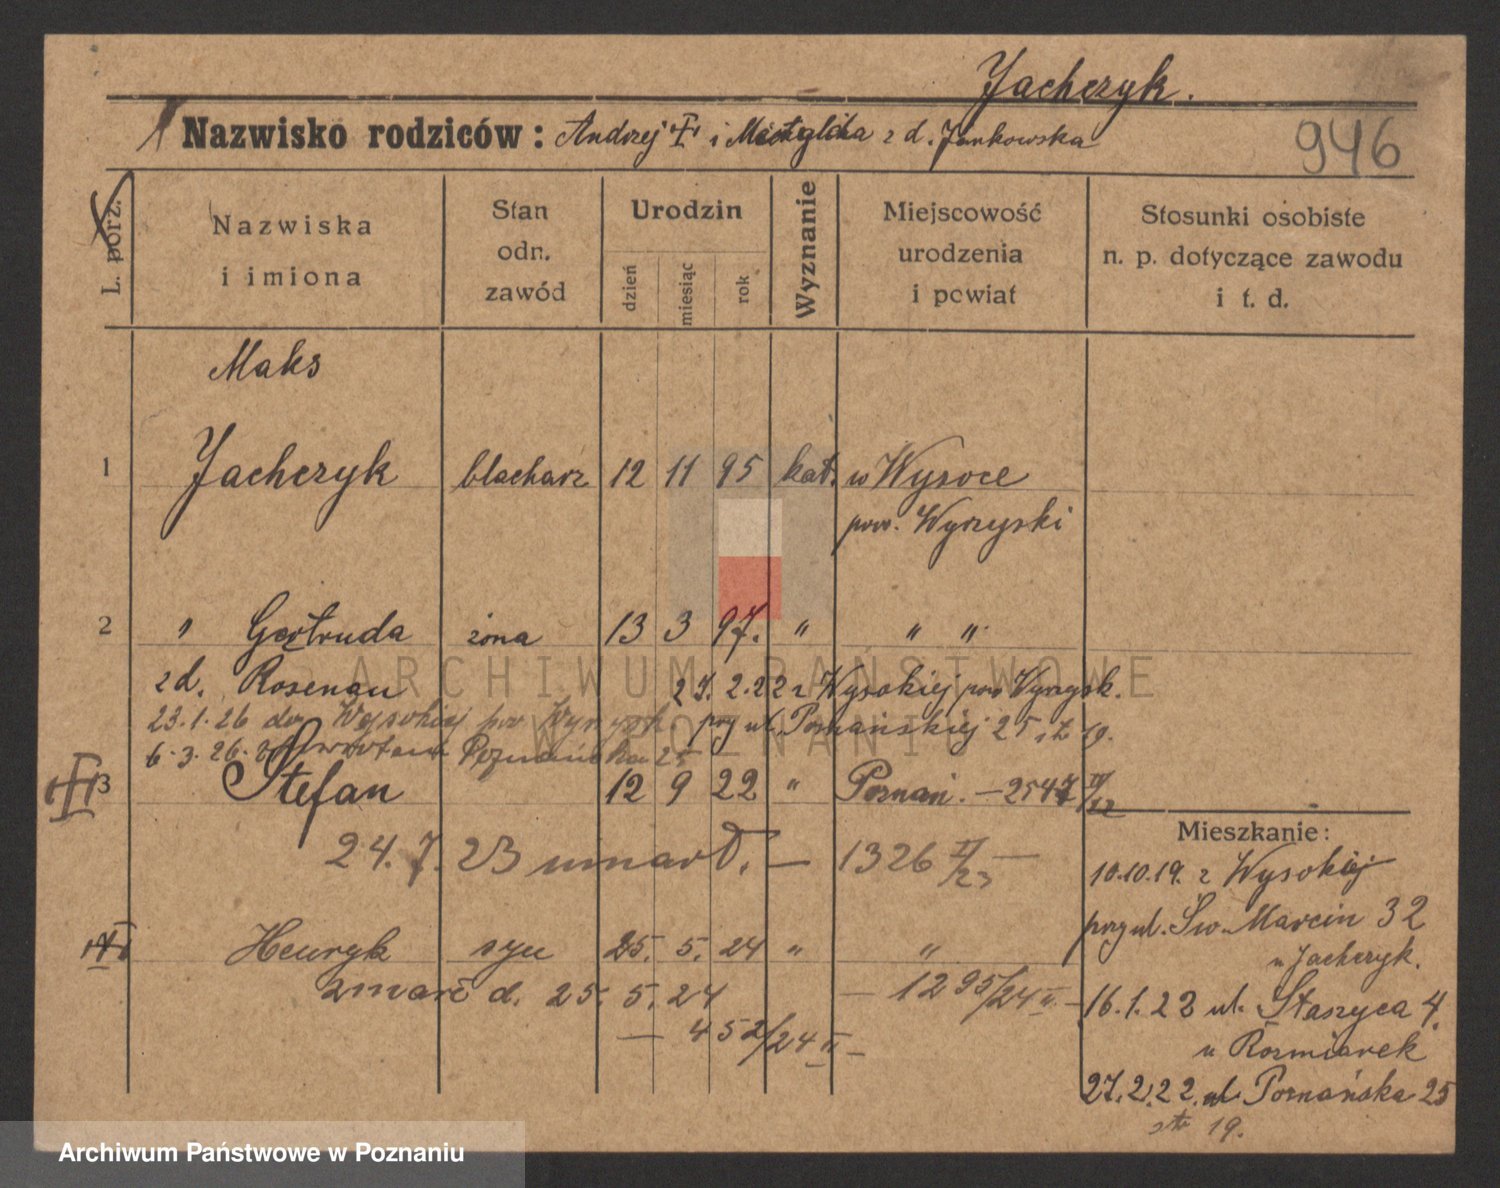 Jachczyk.
Nazwisko rodziców: Andrzej i z d. Jankowska
946
L. porz.
Nazwiska i imiona
Stan odn. zawód
Urodzin
dzień
miesiąc
rok
Wyznanie
Miejscowość urodzenia i powiat
Stosunki osobiste n. p. dotyczące zawodu i t. d.
Maks
1 Jachczyk blacharz 12 11 95 kat. w Wysoce
pow. Wyrzyski
2 " Gertruda żona 13 3 97. " " "
z d. Rosenau 27. 2. 22 z Wysokiej pow Wyrzysk.
23.1.26 do Wysokiej pow Wyrzysk przy ul. Poznańskiej 25 19.
6.3.26. Poznańska 25
3 Stefan 12 9 22 " Poznań. – 2547 IV/22
24.7.23 umarł. – 1326 II/23 –
Henryk syn 25. 5. 24 " "
zmarł d. 25. 5. 24 – 1295/24 II. –
– 452/24 II –
Mieszkanie:
10.10.19. z Wysokiej
przy ul. Św. Marcin 32
u Jachczyk.
16.1.22 ul. Staszyca 4.
u Rozmiarek
27.2.22. ul. Poznańska 25
19.
ARCHIWUM PAŃSTWOWE
W POZNANIU
Archiwum Państwowe w Poznaniu